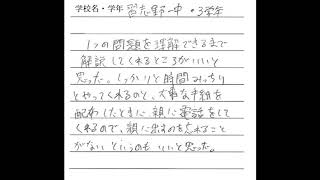 学校名・学年 習志野一中・3学年
1つの問題を理解できるまで
解説してくれるところがいいと
思った。しっかりと時間みっちり
とやってくれるのと、大事な手紙を
配布したときに親に電話をして
くれるので、親に出すのも忘れること
がないというのもいいと思った。